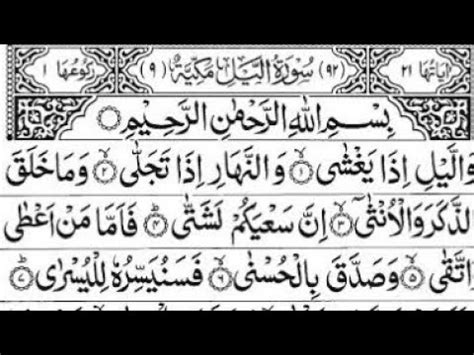 اٰیَاتُهَا ٢١ (٩٢) سُوْرَةُ الَّيْلِ مَكِّيَّةٌ (٩) رُكُوْعُهَا ١
بِسْمِ اللهِ الرَّحْمٰنِ الرَّحِيْمِ
وَالَّيْلِ اِذَا يَغْشٰى ١ وَالنَّهَارِ اِذَا تَجَلّٰى ٢ وَمَا خَلَقَ
الذَّكَرَ وَالْاُنْثٰى ٣ اِنَّ سَعْيَكُمْ لَشَتّٰى ٤ فَاَمَّا مَنْ اَعْطٰى
اتَّقٰى ٥ وَصَدَّقَ بِالْحُسْنٰى ٦ فَسَنُيَسِّرُهٗ لِلْيُسْرٰى ٧